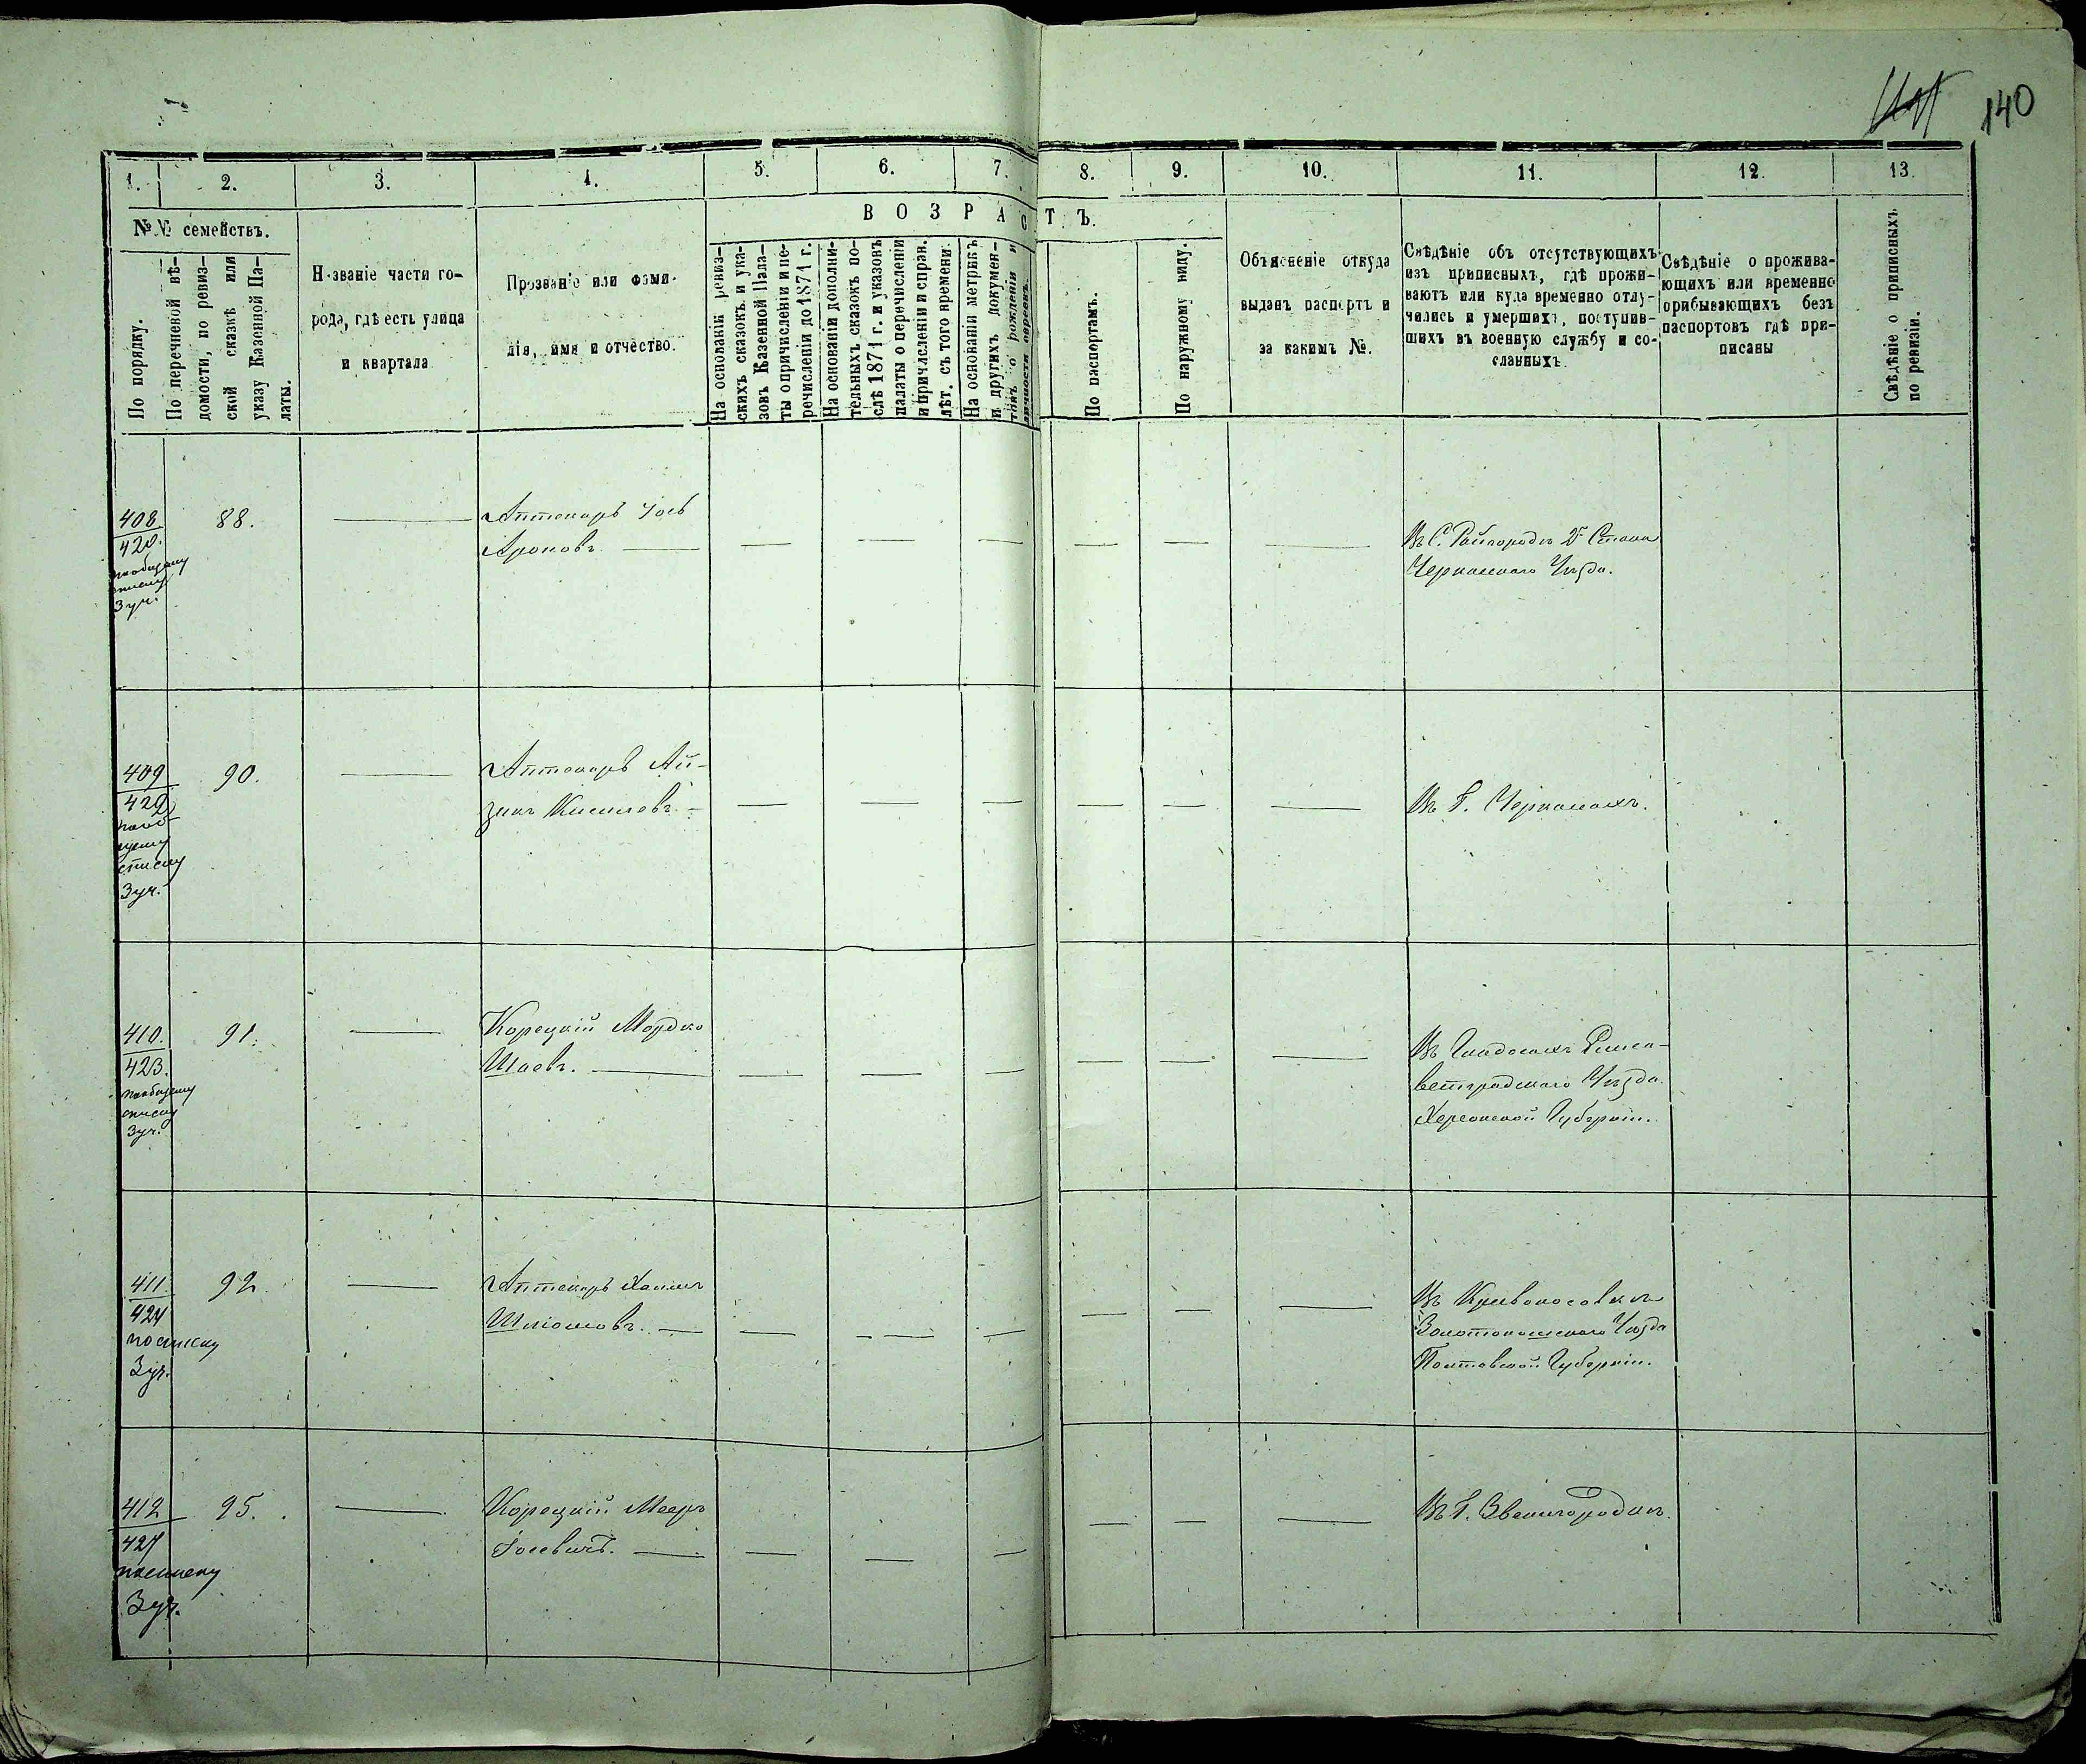 140
1. 2. 3. 4. 5. 6. 7. 8. 9. 10. 11. 12. 13.
№№ семействъ.
По порядку.
По перечневой вѣ-
домости, по ревиз-
ской сказкѣ или
указу Казенной Па-
латы.
Названіе части го-
рода, гдѣ есть улица
и квартала
Прозваніе или фами-
лія, имя и отчество.
ВОЗРАСТЪ.
На основаніи ревиз-
скихъ сказокъ и ука-
зовъ Казенной Пала-
ты о причисленіи и пе-
речисленіи до 1871 г.
На основаніи дополни-
тельныхъ сказокъ по-
слѣ 1871 г. и указовъ
палаты о перечислени
и причисленіи и справ.
лѣт. съ того времени.
На основаніи метрикъ
и другихъ докумен-
товъ о рожденіи и
личности евреевъ.
По паспортамъ.
По наружному виду.
Объясненіе откуда
выданъ паспортъ и
за какимъ №.
Свѣдѣніе объ отсутствующихъ
изъ приписныхъ, гдѣ прожи-
ваютъ или куда временно отлу-
чились и умершихъ, поступив-
шихъ въ военную службу и со-
сланныхъ.
Свѣдѣніе о прожива-
ющихъ или временно
прибывающихъ безъ
паспортовъ гдѣ при-
писаны
Свѣдѣніе о приписныхъ
по ревизіи.
408
420.
по общему
списку
3 уч.
88.
Аптекарь Іось
Ароновъ.
Въ С. Райгородѣ 2г Стана
Черкасскаго Уѣзда.
409
422
по об-
щему
списку
3 уч.
90.
Аптекарь Ай-
зикъ Кисилевъ.
Въ Г. Черкасахъ.
410.
423.
по общему
списку
3 уч.
91.
Корецкій Мордко
Шаевъ.
Въ Елиса-
ветградскаго Уѣзда
Херсонской Губерніи.
411.
424
по списку
3 уч.
92.
Аптекарь Хаимъ
Шліомовъ.
Въ Кривоносовкѣ
Золотоношскаго Уѣзда
Полтавской Губерніи.
412
427
по списку
3 уч.
95.
Корецкій Мееръ
Іосевичъ.
Въ Г. Звенигородкѣ.